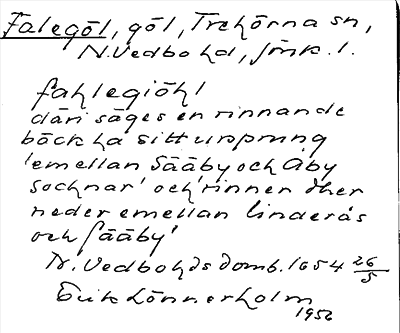 Falegöl, göl, Trehörna sn,
N. Vedbo hd, Jönk. l.
fahlegiöhl
däri säges en rinnande
bäck ha sitt ursprung
'emellan Sääby och Åby
sochnar' och 'rinnen dher
neder emellan linderås
och sääby'
N. Vedbo hds domb. 1654 26/5
Erik Lönnerholm
1956